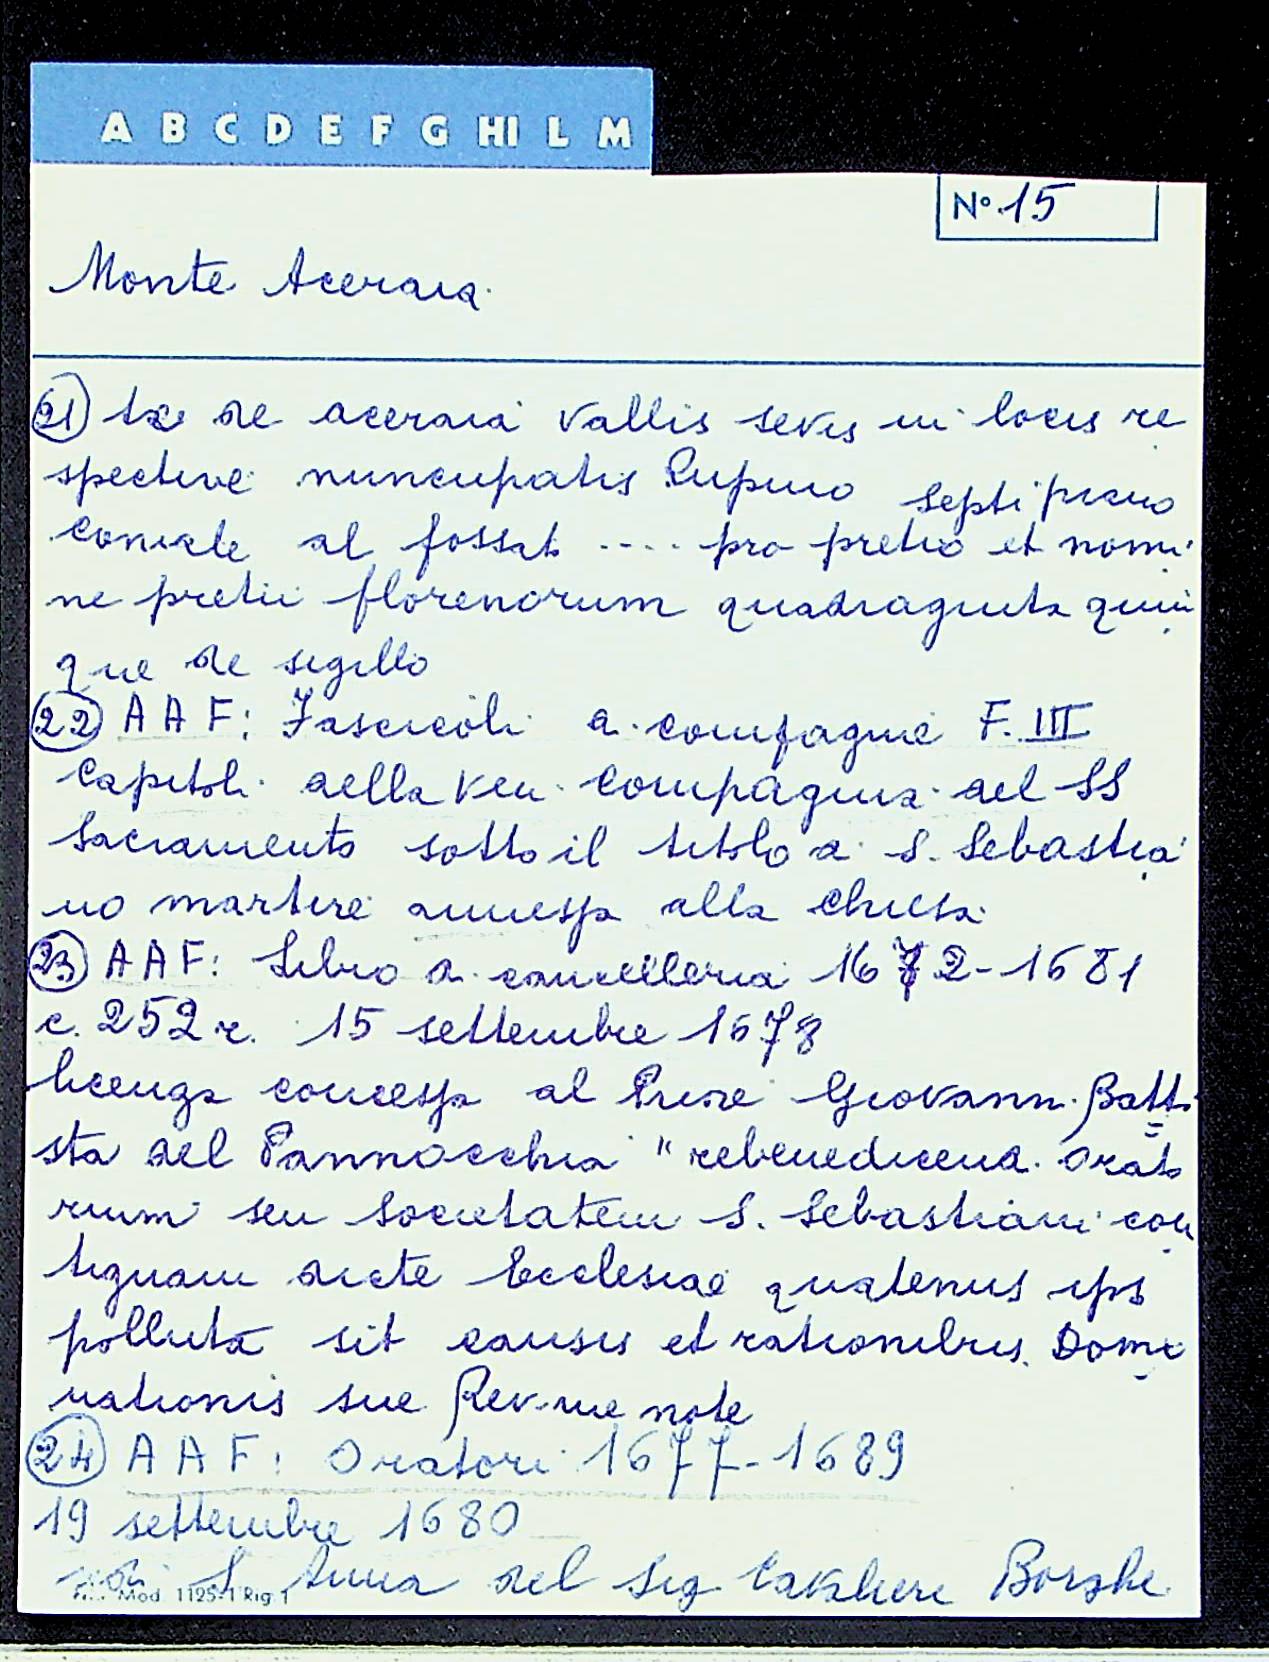 A B C D E F G HI L M
N° 15
Monte Aceraia
21 de aceraia Vallis sevis in locis re
spective nuncupatis Lupino septi piano
coniale al fossato .... pro pretio et nomi
ne pretii florenorum quadraginta quin
que de sigillo
22 AAF: Fascicoli di compagnie F. III
Capitoli della Ven. Compagnia del SS
Sacramento sotto il titolo di S. Sebastia
no martire annessa alla chiesa
23 AAF: Libro di cancelleria 1672-1681
c. 252 r. 15 settembre 1678
licenza concessa al Priore Giovann. Batti
sta del Pannocchia " rebenedicend. Orato
rium seu Societatem S. Sebastiani con
tiguam dicte Ecclesiae quatenus ipsa
polluta sit causis et rationibus Domi
nationis sue Rev.me note
24 AAF: Oratori 1677-1689
19 settembre 1680
di S. Anna del Sig. Cavaliere Borghe
Mod. 1125-1 Rig 1